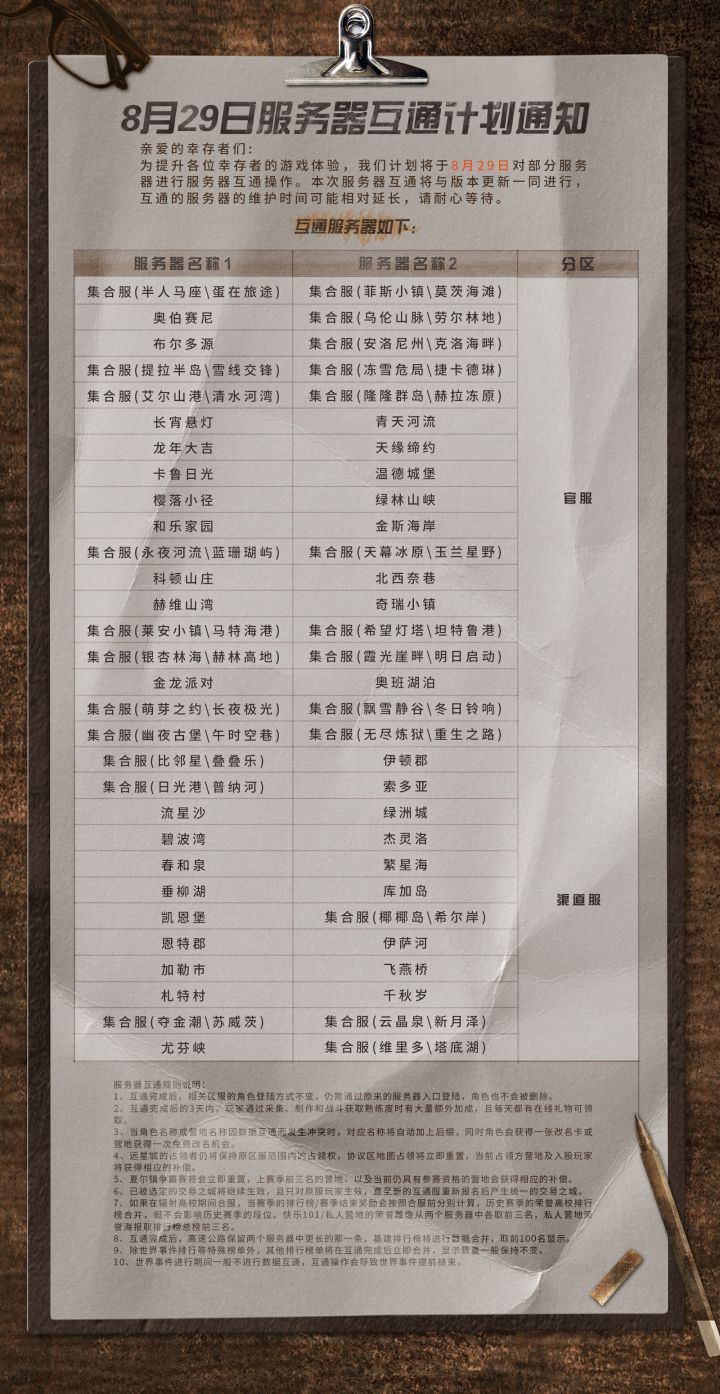 8月29日服务器互通计划通知
亲爱的幸存者们：
为提升各位幸存者的游戏体验，我们计划将于8月29日对部分服务
器进行服务器互通操作。本次服务器互通将与版本更新一同进行，
互通的服务器的维护时间可能相对延长，请耐心等待。
互通服务器如下：
服务器名称1 服务器名称2 分区
集合服(半人马座\蛋在旅途) 集合服(菲斯小镇\莫茨海滩)
奥伯赛尼 集合服(乌伦山脉\劳尔林地)
布尔多源 集合服(安洛尼州\克洛海畔)
集合服(提拉半岛\雪线交锋) 集合服(冻雪危局\捷卡德琳)
集合服(艾尔山港\清水河湾) 集合服(隆隆群岛\赫拉冻原)
长宵悬灯 青天河流
龙年大吉 天缘缔约
卡鲁日光 温德城堡
樱落小径 绿林山峡 官服
和乐家园 金斯海岸
集合服(永夜河流\蓝珊瑚屿) 集合服(天幕冰原\玉兰星野)
科顿山庄 北西奈巷
赫维山湾 奇瑞小镇
集合服(莱安小镇\马特海港) 集合服(希望灯塔\坦特鲁港)
集合服(银杏林海\赫林高地) 集合服(霞光崖畔\明日启动)
金龙派对 奥班湖泊
集合服(萌芽之约\长夜极光) 集合服(飘雪静谷\冬日铃响)
集合服(幽夜古堡\午时空巷) 集合服(无尽炼狱\重生之路)
集合服(比邻星\叠叠乐) 伊顿郡
集合服(日光港\普纳河) 索多亚
流星沙 绿洲城
碧波湾 杰灵洛
春和泉 繁星海
垂柳湖 库加岛 渠道服
凯恩堡 集合服(椰椰岛\希尔岸)
恩特郡 伊萨河
加勒市 飞燕桥
札特村 千秋岁
集合服(夺金潮\苏威茨) 集合服(云晶泉\新月泽)
尤芬峡 集合服(维里多\塔底湖)
服务器互通规则说明：
1、互通完成后，相关区服的角色登陆方式不变，仍需通过原来的服务器入口登陆，角色也不会被删除。
2、互通完成后的3天内，玩家通过采集、制作和战斗获取熟练度时有大量额外加成，且每天都有在线礼物可领
取。
3、当角色名称或营地名称因数据互通而发生冲突时，对应名称将自动加上后缀，同时角色会获得一张改名卡或
营地获得一次免费改名机会。
4、远星城的占领者仍将保持原区服范围内的占领权，协议区地图占领将立即重置，当前占领方营地及入股玩家
将获得相应的补偿。
5、夏尔镇争霸赛将会立即重置，上赛季前三名的营地、以及当前仍具有参赛资格的营地会获得相应的补偿。
6、已被选定的交易之城将继续生效，且只对原服玩家生效，直至新的互通服重新报名后产生统一的交易之城。
7、如果在辐射高校期间合服，当赛季的排行榜/赛季结束奖励会按照合服前分别计算，历史赛季的荣誉高校排行
榜合并，但不会影响历史赛季的段位。快乐101/私人营地的荣誉雕像从两个服务器中各取前三名，私人营地荣
誉海报取排行榜总榜前三名。
8、互通完成后，高速公路保留两个服务器中更长的那一条，基建排行榜将进行数据合并，取前100名显示。
9、除世界事件排行等特殊榜单外，其他排行榜单将在互通完成后立即合并，显示数量一般保持不变。
10、世界事件进行期间一般不进行数据互通，互通操作会导致世界事件提前结束。